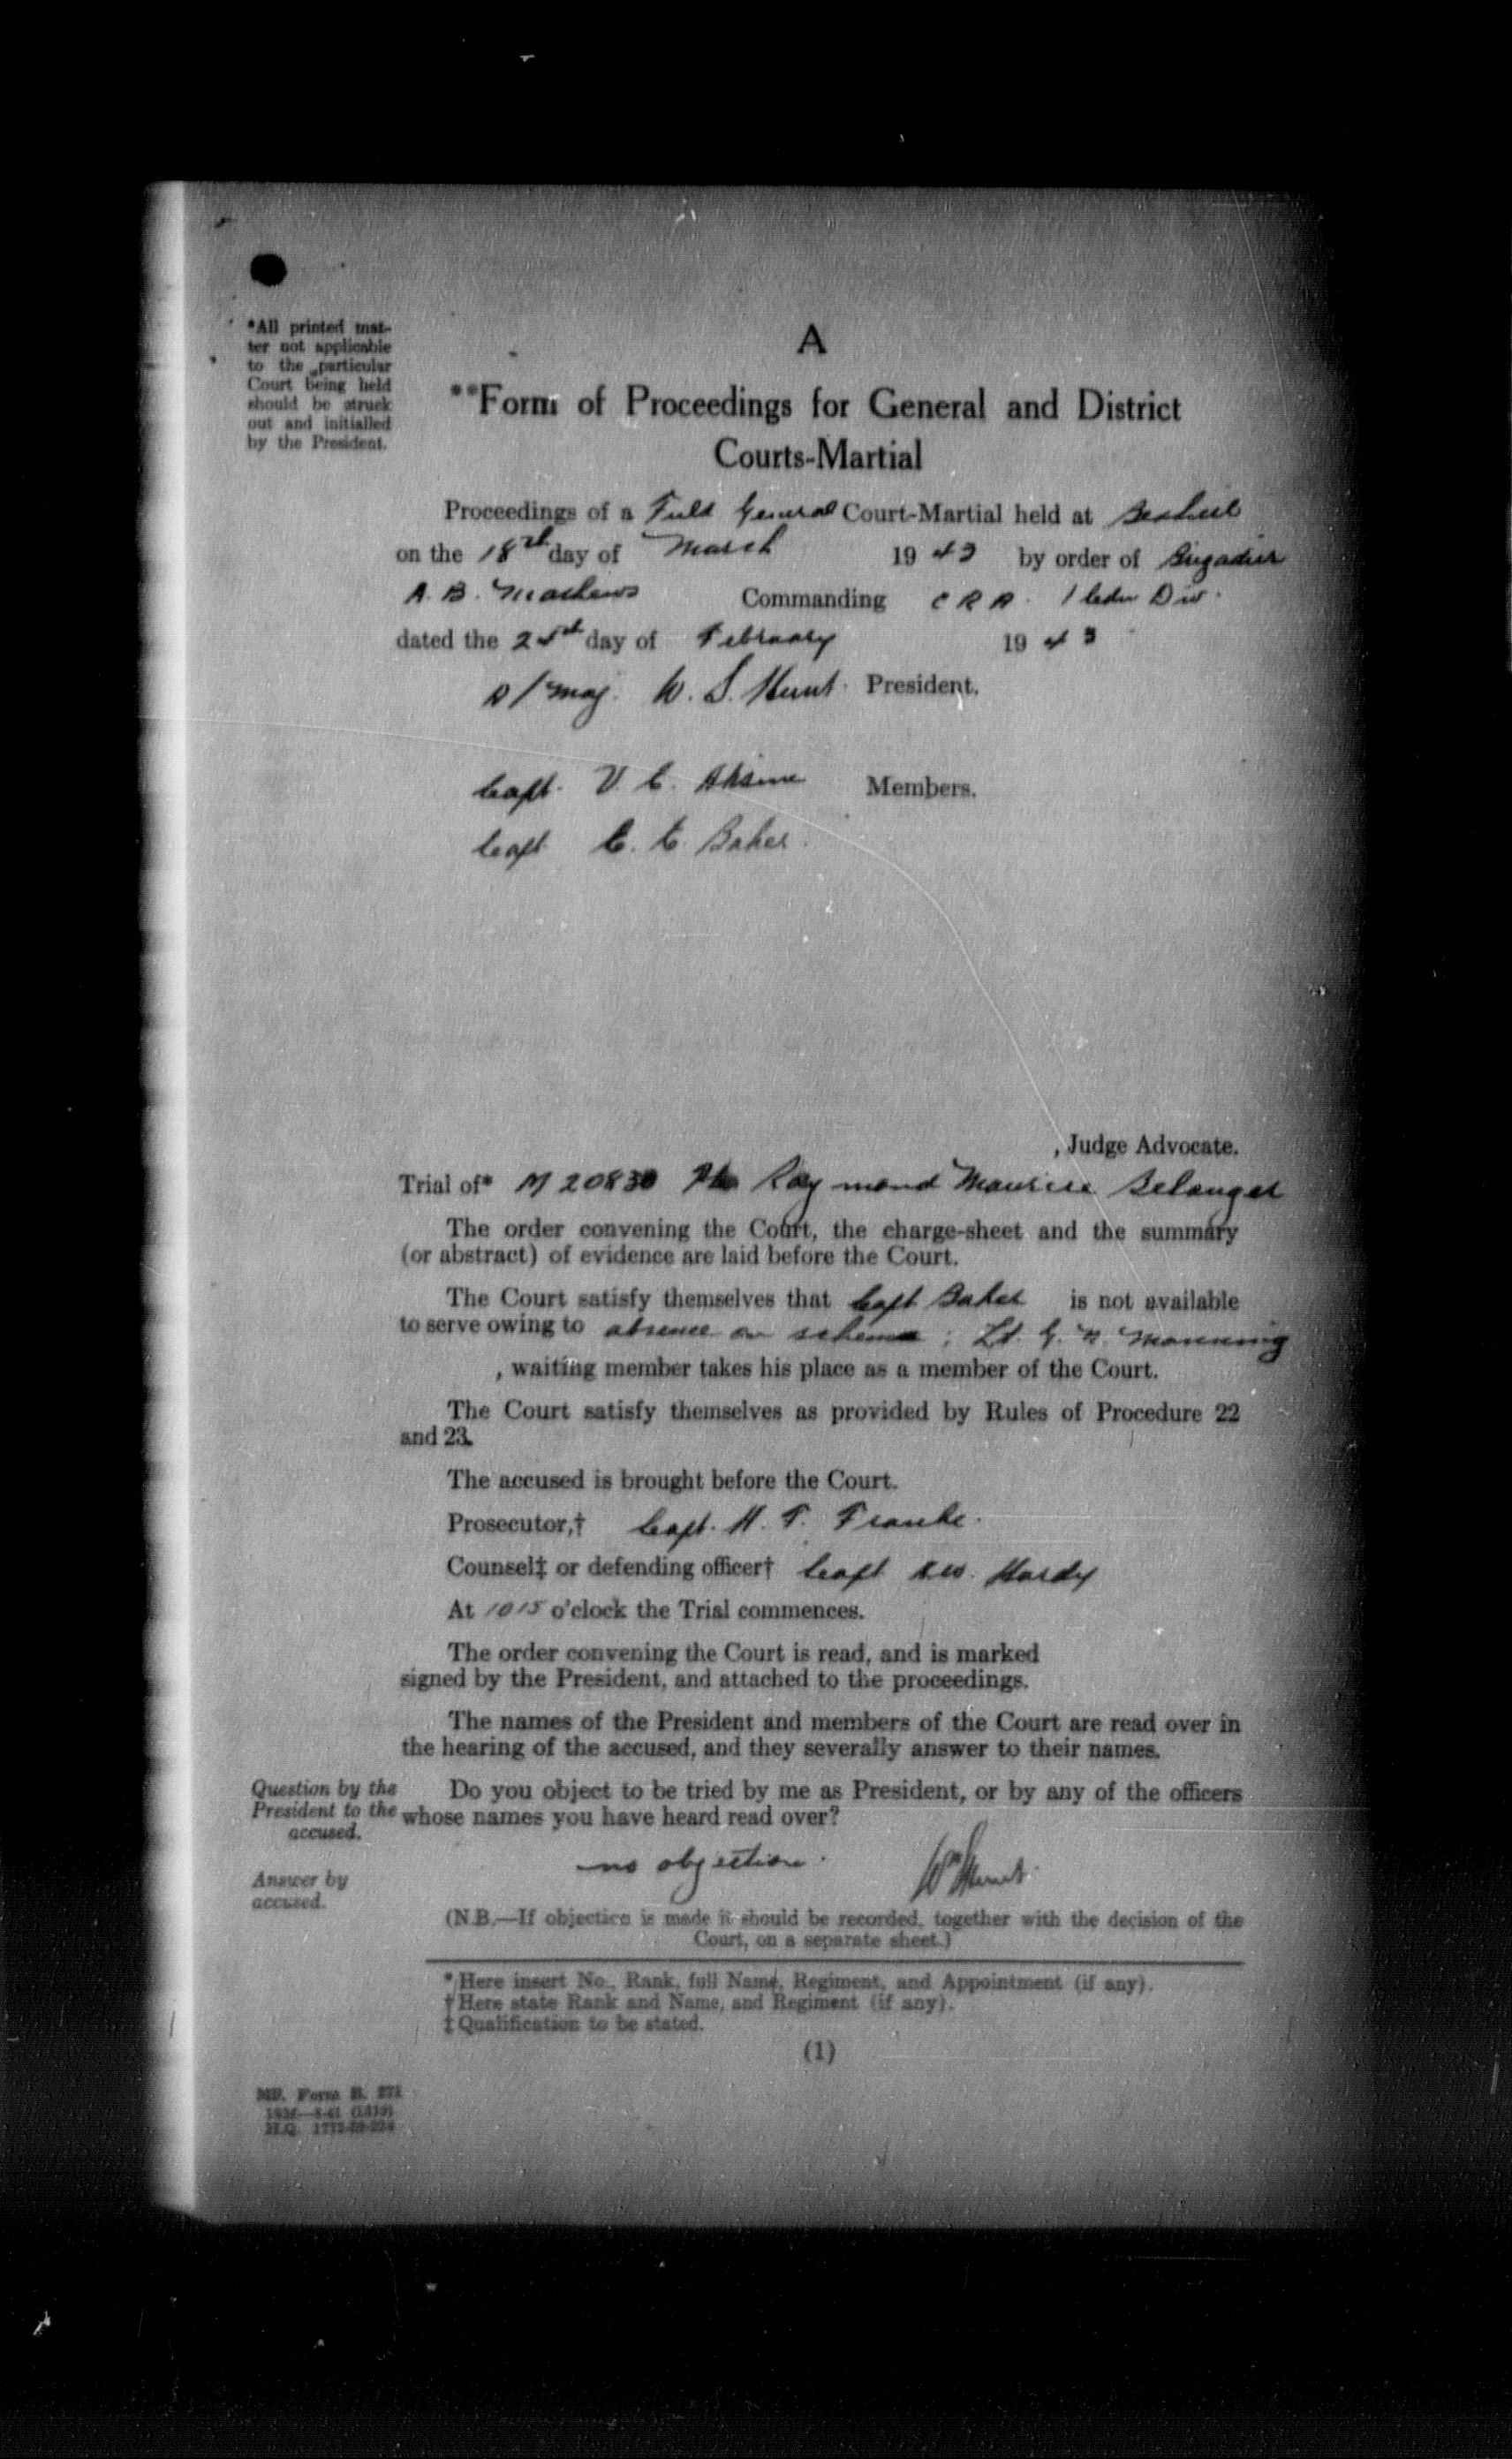 *All printed mat-
ter not applicable
to the particular
Court being held
should be struck
out and initialled
by the President.
A
**Form of Proceedings for General and District
Courts-Martial
Proceedings of a Field General Court-Martial held at Bexhill
on the 18th day of March 1943 by order of Brigadier
A. B. Mathews Commanding C R A. 1 Cdn Div.
dated the day of February 1943
A/Maj. W. S. Hunt. President.
Capt. V. C. Members.
Capt C. C. Baker.
, Judge Advocate.
Trial of* M 20830 Raymond Maurice Belanger
The order convening the Court, the charge-sheet and the summary
(or abstract) of evidence are laid before the Court.
The Court satisfy themselves that Capt Baker is not available
to serve owing to absence on scheme ; Lt. G. N. Manning
, waiting member takes his place as a member of the Court.
The Court satisfy themselves as provided by Rules of Procedure 22
and 23.
The accused is brought before the Court.
Prosecutor,† Capt. H. T. Franke.
Counsel‡ or defending officer† Capt Hardy
At 1015 o'clock the Trial commences.
The order convening the Court is read, and is marked
signed by the President, and attached to the proceedings.
The names of the President and members of the Court are read over in
the hearing of the accused, and they severally answer to their names.
Question by the
President to the
accused.
Do you object to be tried by me as President, or by any of the officers
whose names you have heard read over?
Answer by
accused.
no objection.
(N.B.—If objection is made it should be recorded, together with the decision of the
Court, on a separate sheet.)
* Here insert No., Rank, full Name, Regiment, and Appointment (if any).
† Here state Rank and Name, and Regiment (if any).
‡ Qualification to be stated.
(1)
MD. Form B. 271